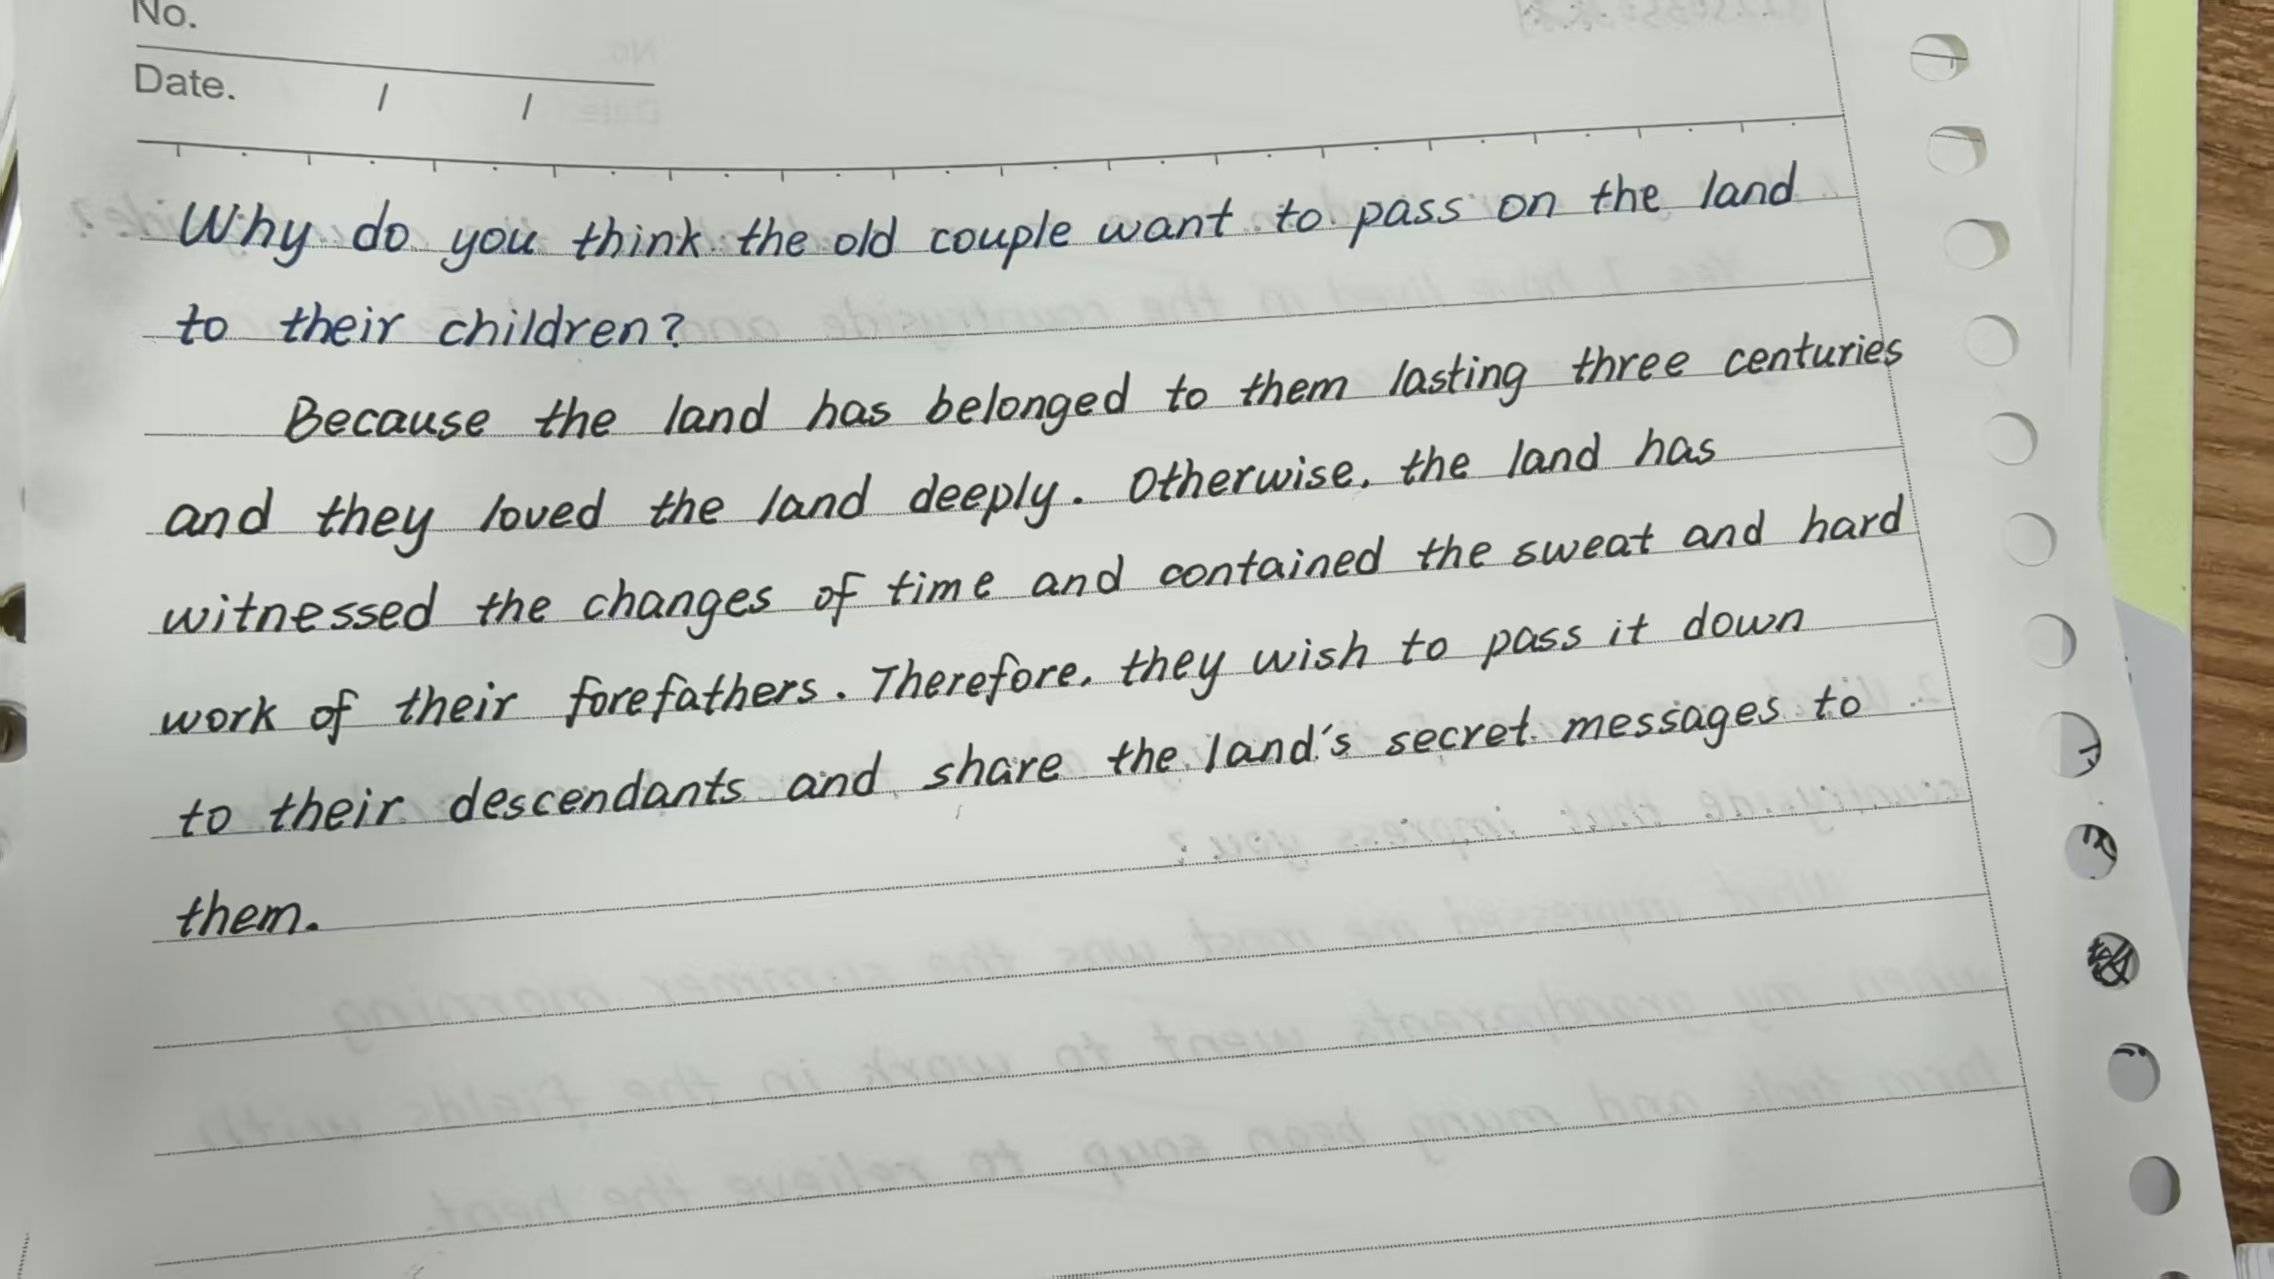 No.
Date. / /
Why do you think the old couple want to pass on the land
to their children?
Because the land has belonged to them lasting three centuries
and they loved the land deeply. Otherwise, the land has
witnessed the changes of time and contained the sweat and hard
work of their forefathers. Therefore, they wish to pass it down
to their descendants and share the land's secret messages to
them.